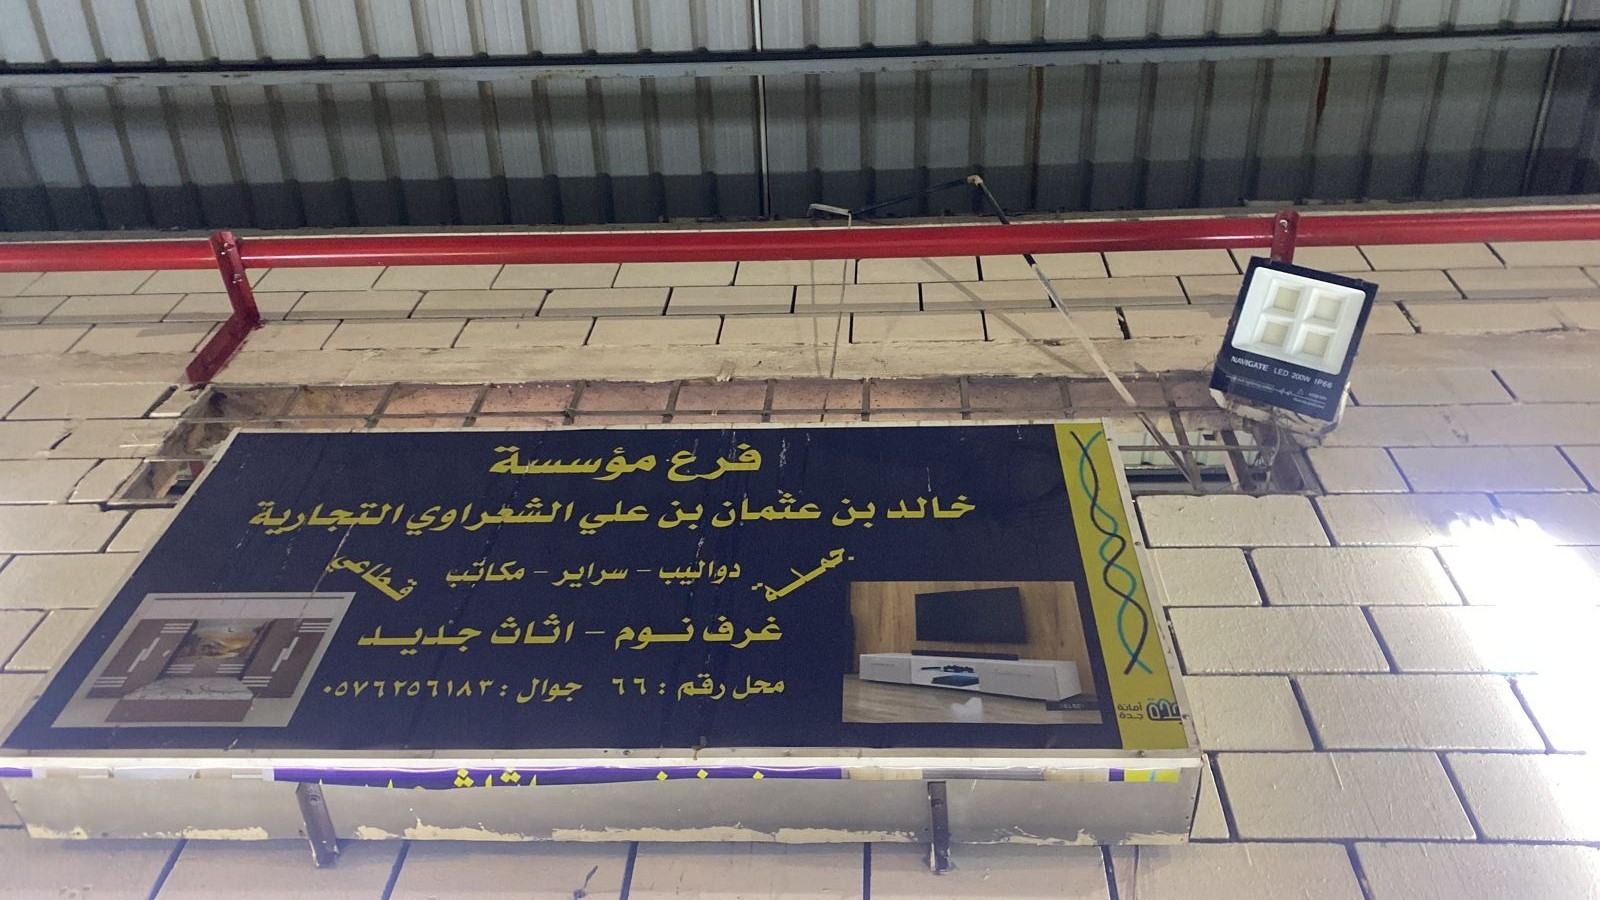 فرع مؤسسة
خالد بن عثمان بن علي الشعراوي التجارية
جملة
دواليب - سراير - مكاتب
قطاعي
غرف نوم - اثاث جديد
محل رقم : ٦٦ جوال : ٠٥٧٦٢٥٦١٨٣
أمانة
جدة
NAVIGATE LED 200W IP66